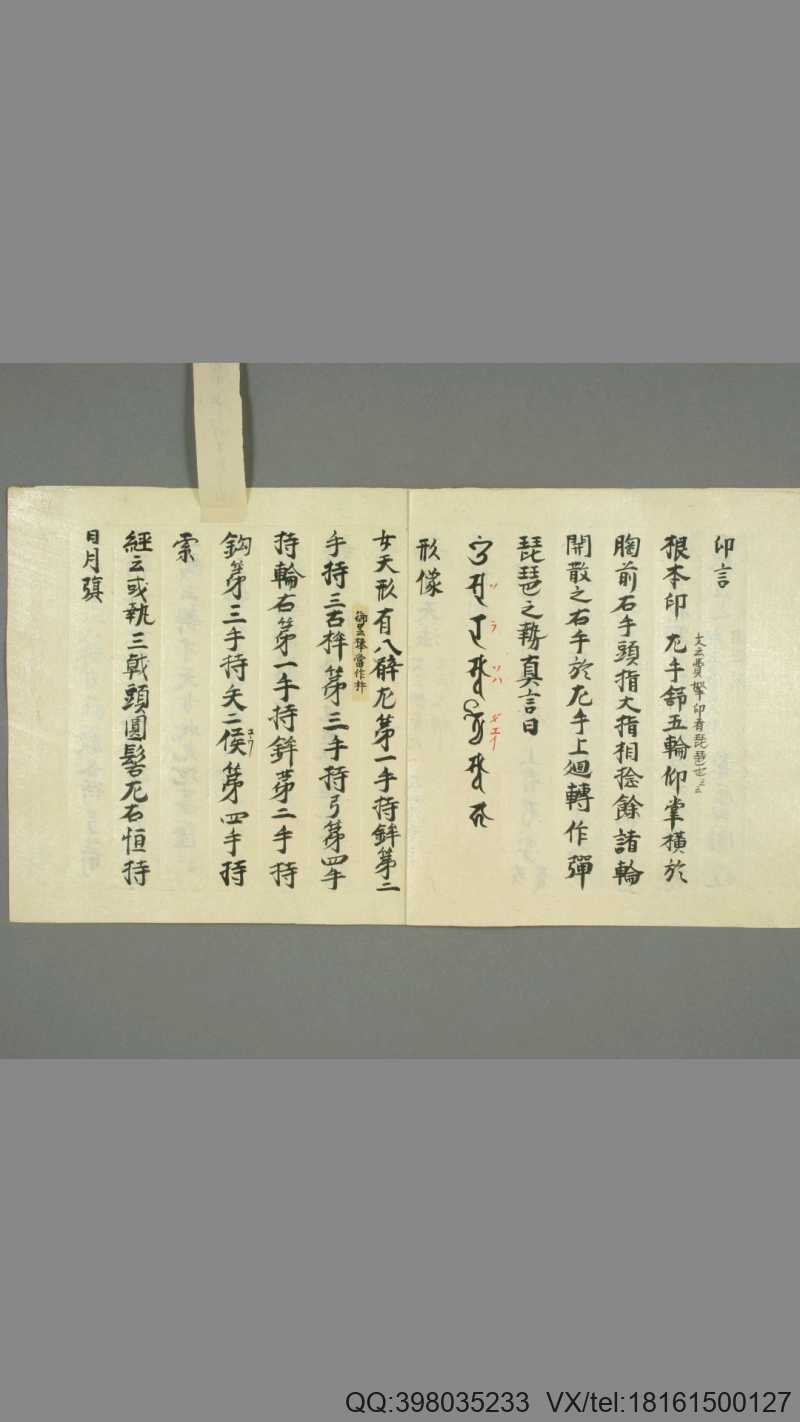 印言
根本印 左手舒五輪仰掌橫於
又云費拏印者琵琶也云云
胸前右手頭指大指相捻餘諸輪
開散之右手於左手上迴轉作彈
琵琶之勢真言曰
ソ ラ ソハ ダエイ
形像
女天形有八臂左第一手持鉾第二
手持三古杵第三手持弓第四手
持輪右第一手持鉾第二手持
鈎第三手持矢二侯第四手持
索
經云或執三戟頭圓髻左右恒持
日月旗
QQ:398035233 VX/tel:18161500127